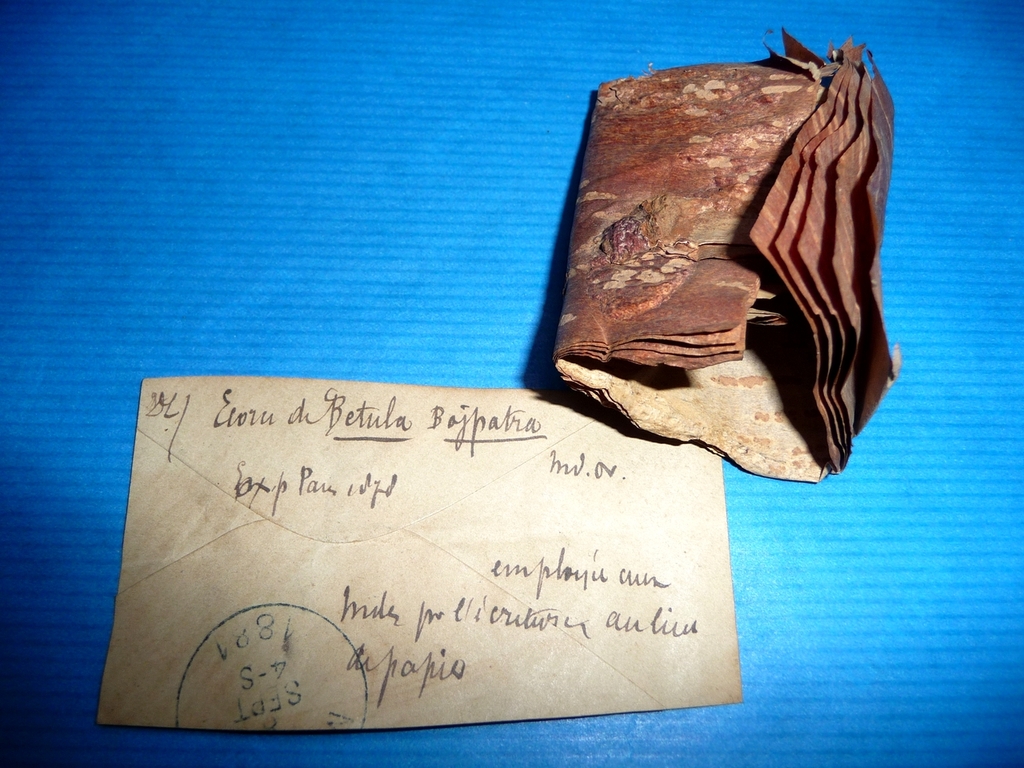 Ecorce de Betula Bojpatra
Ind. or.
Exp Paris 1878
employée aux
Indes pr l'écriture au lieu
de papier
1891
4-S
SEPT